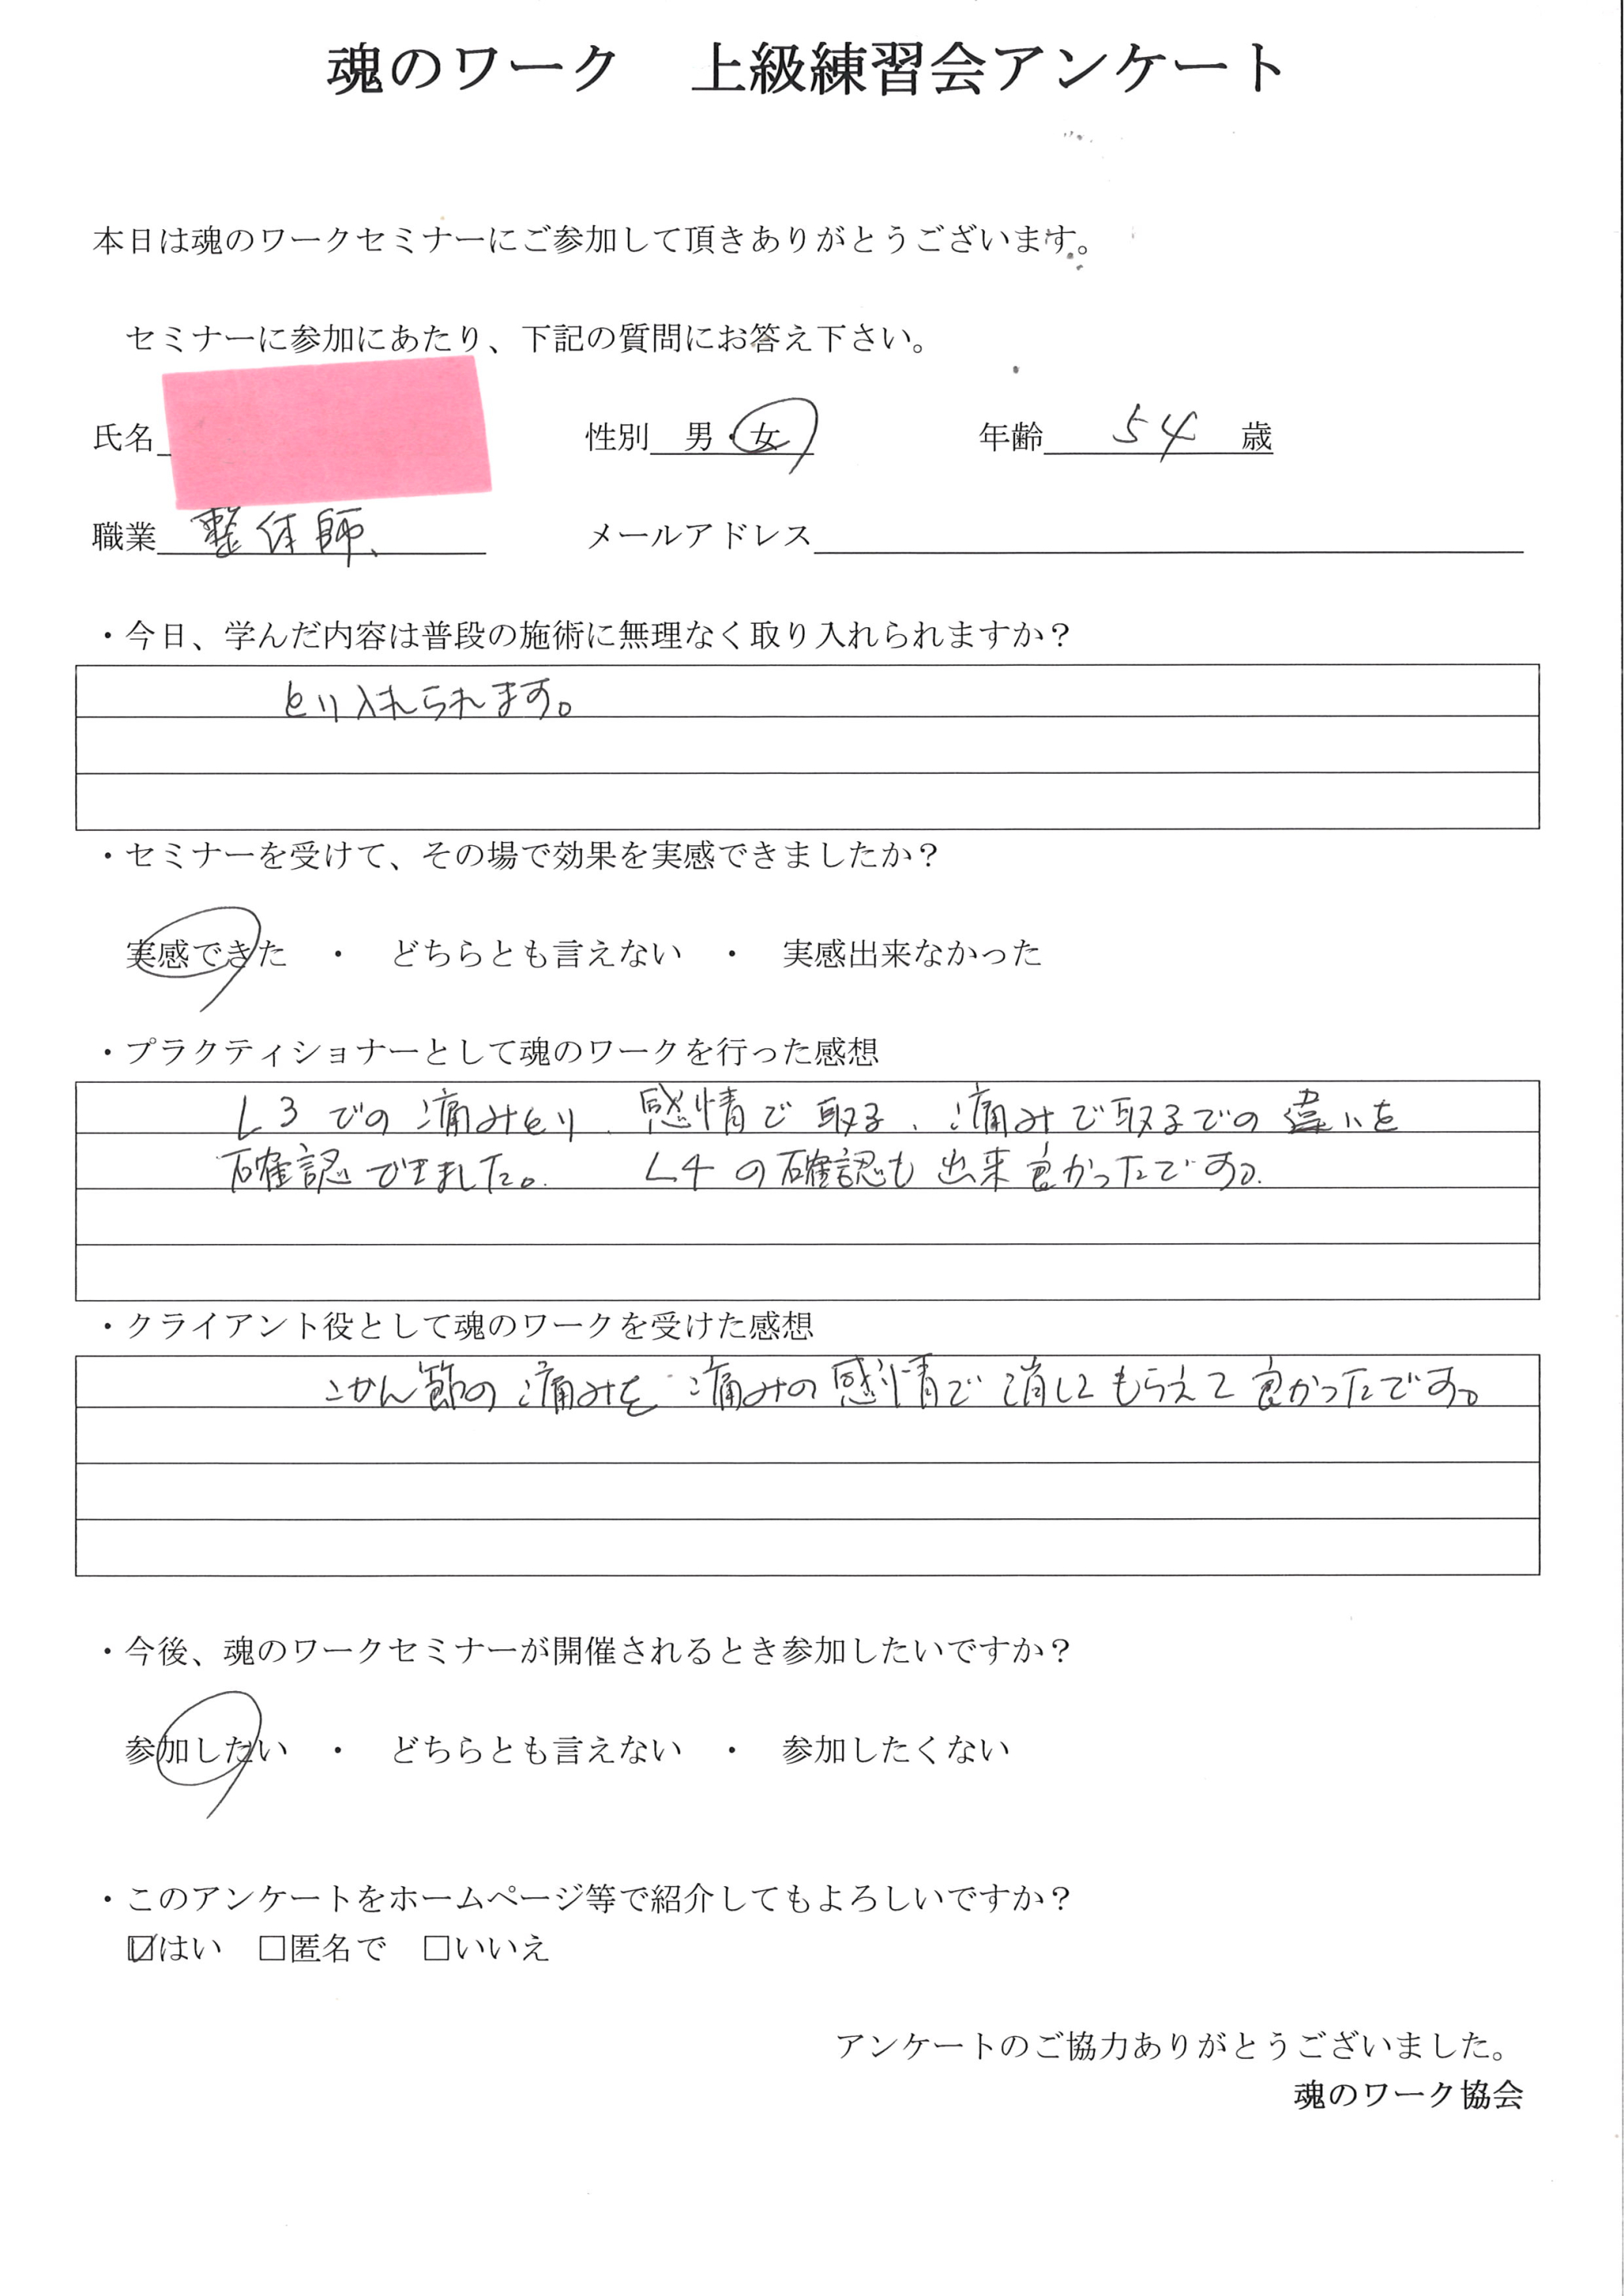 魂のワーク　上級練習会アンケート
本日は魂のワークセミナーにご参加して頂きありがとうございます。
セミナーに参加にあたり、下記の質問にお答え下さい。
氏名　性別　男・女　年齢　54　歳
職業　整体師、　メールアドレス
・今日、学んだ内容は普段の施術に無理なく取り入れられますか？
とり入れられます。
・セミナーを受けて、その場で効果を実感できましたか？
実感できた　・　どちらとも言えない　・　実感出来なかった
・プラクティショナーとして魂のワークを行った感想
L3での痛みとり、感情で取る、痛みで取るでの違いを
確認できました。　L4の確認も出来良かったです。
・クライアント役として魂のワークを受けた感想
こかん節の痛みを痛みの感情で消してもらえて良かったです。
・今後、魂のワークセミナーが開催されるとき参加したいですか？
参加したい　・　どちらとも言えない　・　参加したくない
・このアンケートをホームページ等で紹介してもよろしいですか？
☑はい　□匿名で　□いいえ
アンケートのご協力ありがとうございました。
魂のワーク協会